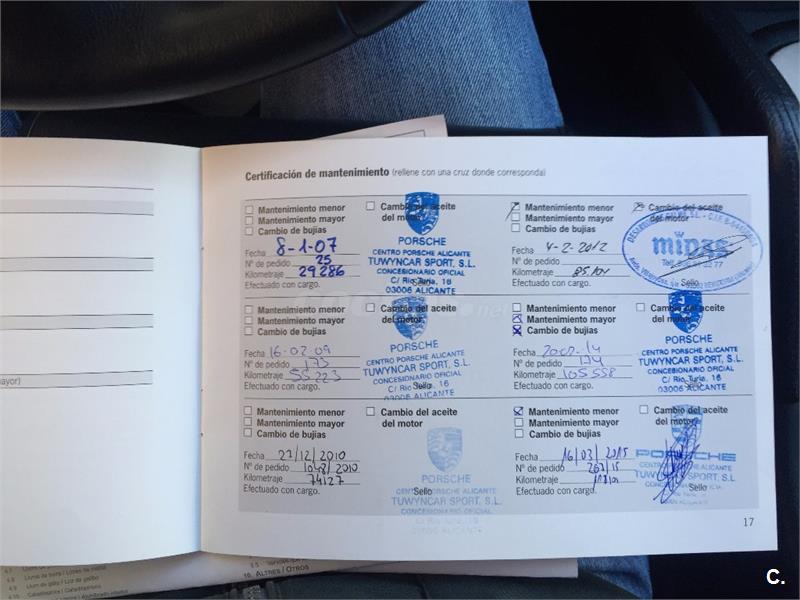 Certificación de mantenimiento (rellene con una cruz donde corresponda)
Mantenimiento menor
Mantenimiento mayor
Cambio de bujias
Cambio del aceite
del motor
Fecha 8-1-07
Nº de pedido 25
Kilometraje 29286
Efectuado con cargo.
Sello
PORSCHE
CENTRO PORSCHE ALICANTE
TUWYNCAR SPORT, S.L.
CONCESIONARIO OFICIAL
C/ Río Turia, 16
03006 ALICANTE
Mantenimiento menor
Mantenimiento mayor
Cambio de bujias
Cambio del aceite
del motor
Fecha 4-2-2012
Nº de pedido
Kilometraje
Efectuado con cargo.
Sello
midas
Mantenimiento menor
Mantenimiento mayor
Cambio de bujias
Cambio del aceite
del motor
Fecha 16-02 09
Nº de pedido 173
Kilometraje 55223
Efectuado con cargo.
Sello
PORSCHE
CENTRO PORSCHE ALICANTE
TUWYNCAR SPORT, S.L.
CONCESIONARIO OFICIAL
C/ Río Turia, 16
03006 ALICANTE
Mantenimiento menor
Mantenimiento mayor
Cambio de bujias
Cambio del aceite
del motor
Fecha
Nº de pedido 174
Kilometraje 105558
Efectuado con cargo.
PORSCHE
CENTRO PORSCHE ALICANTE
TUWYNCAR SPORT, S.L.
CONCESIONARIO OFICIAL
C/ Río Turia, 16
03006 ALICANTE
Mantenimiento menor
Mantenimiento mayor
Cambio de bujias
Cambio del aceite
del motor
Fecha 27/12/2010
Nº de pedido 1048/2010
Kilometraje 74127
Efectuado con cargo.
Sello
PORSCHE
CENTRO PORSCHE ALICANTE
TUWYNCAR SPORT, S.L.
CONCESIONARIO OFICIAL
C/ Río Turia, 16
03006 ALICANTE
Mantenimiento menor
Mantenimiento mayor
Cambio de bujias
Cambio del aceite
del motor
Fecha 16/03/2015
Nº de pedido 267/15
Kilometraje
Efectuado con cargo.
Sello
PORSCHE
TUWYNCAR SPORT, S.L.
17
ayor)
10. ALTRES / OTROS
C.